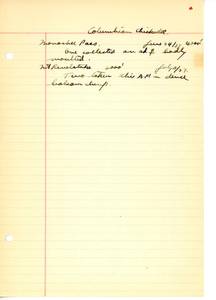 Columbian Chickadee
Monashee Pass. June 29/27 4000'
One collected an ad. ♀ badly
moulted.
Mt Revelstoke 5000' July 9/27.
Two taken this A.M. in dense
balsam clump.